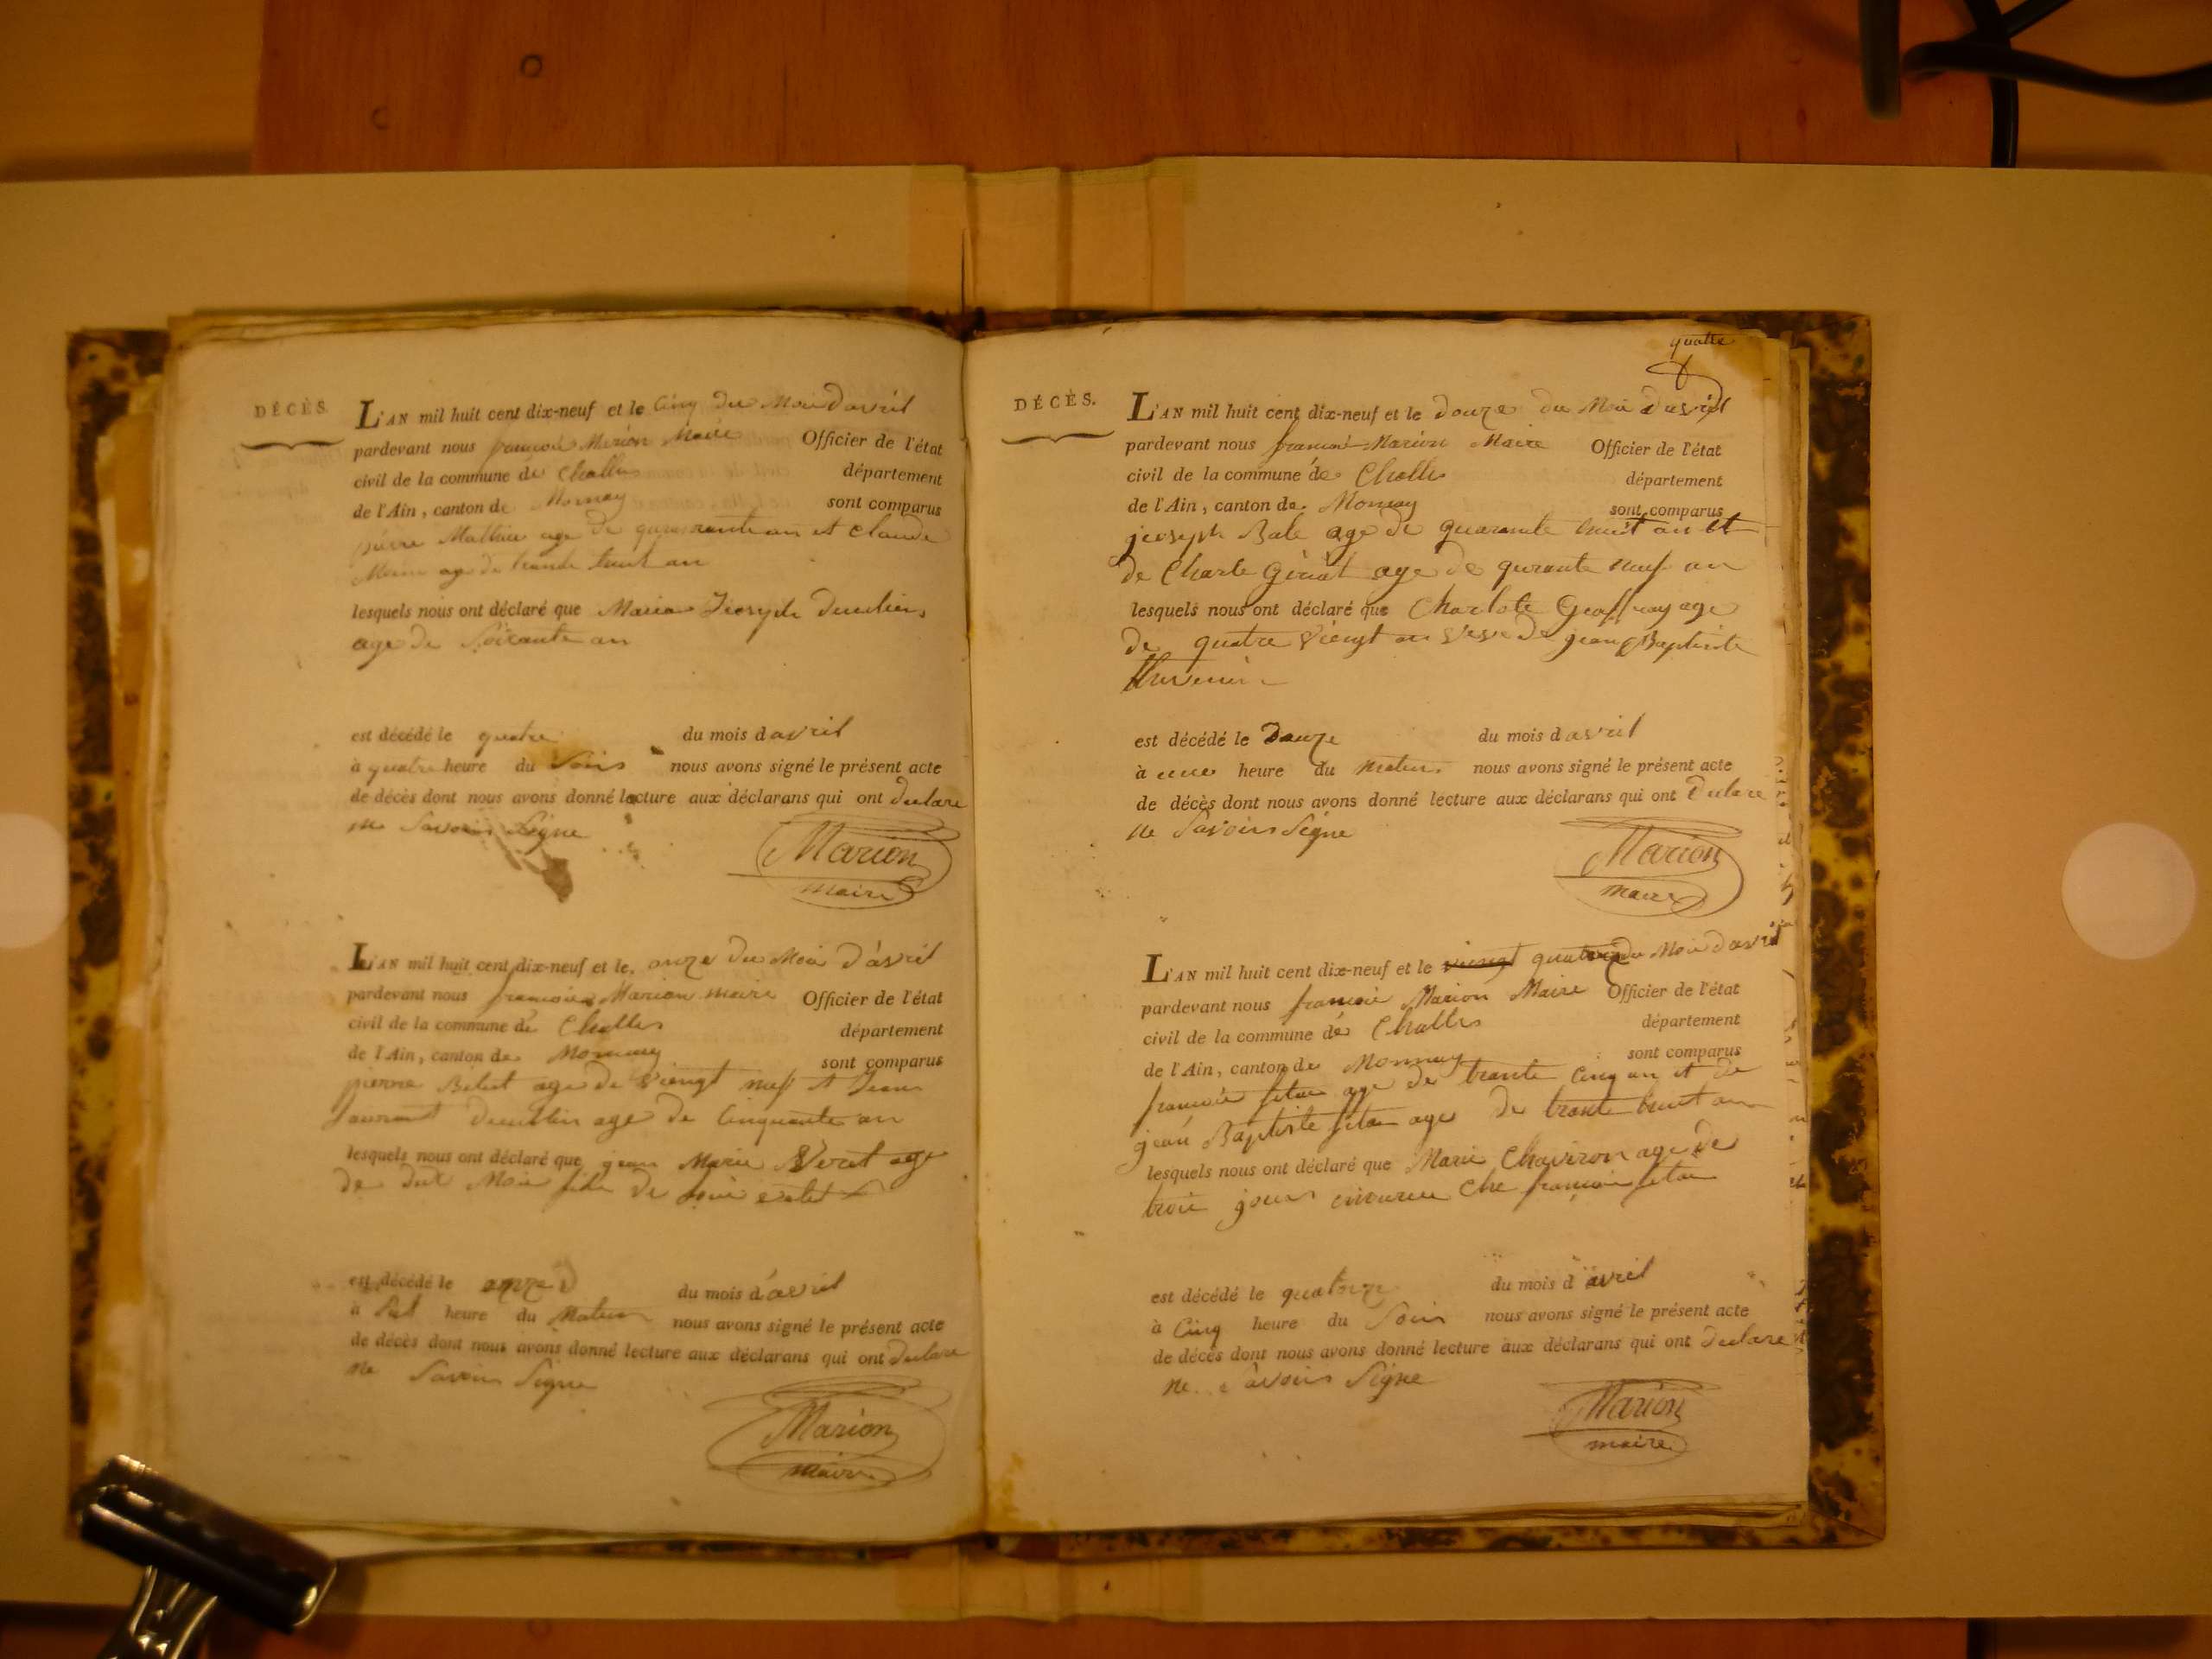 DÉCÈS
L'AN mil huit cent dix-neuf et le cinq du Moi davril
pardevant nous francois Marion Maire Officier de l'état
civil de la commune de Challes département
de l'Ain, canton de Mornay sont comparus
pierre Mathieu age de quarante an et Claude
age de trante huit an
lesquels nous ont déclaré que Maria Jiosephe
age de Soixante an
est décédé le quatre du mois d avril
à quatre heure du Soir nous avons signé le présent acte
de décès dont nous avons donné lecture aux déclarans qui ont declare
ne Savoir Signe
Marion
maire
L'AN mil huit cent dix-neuf et le onze du Moi d'avril
pardevant nous francois Marion maire Officier de l'état
civil de la commune de Challes département
de l'Ain, canton de Mornay sont comparus
pierre age de viengt neuf et Jean
age de Cinquante an
lesquels nous ont déclaré que jean Marie age
de Moi de
est décédé le onze du mois d'avril
à heure du Matin nous avons signé le présent acte
de décès dont nous avons donné lecture aux déclarans qui ont declare
ne Savoir Signe
Marion
maire
quatre
DÉCÈS.
L'AN mil huit cent dix-neuf et le douze du Moi davril
pardevant nous francois Marion Maire Officier de l'état
civil de la commune de Challes département
de l'Ain, canton de Mornay sont comparus
jioseph Bale age de quarante huit an et
de Charle age de qurante neuf an
lesquels nous ont déclaré que Charlote Geoffray age
de quatre viengt an veve de jean Baptiste
est décédé le Douze du mois d avril
à une heure du matin nous avons signé le présent acte
de décès dont nous avons donné lecture aux déclarans qui ont declare
ne Savoir Signe
Marion
maire
L'AN mil huit cent dix-neuf et le viengt quatorze du Moi davril
pardevant nous francois Marion Maire Officier de l'état
civil de la commune de Challes département
de l'Ain, canton de Mornay sont comparus
francois age de trante cinq an et de
jean Baptiste age de trante huit an
lesquels nous ont déclaré que Marie Chaviron age de
troi jours che francois
est décédé le quatorze du mois d avril
à Cinq heure du Soir nous avons signé le présent acte
de décès dont nous avons donné lecture aux déclarans qui ont declare
ne Savoir Signe
Marion
maire